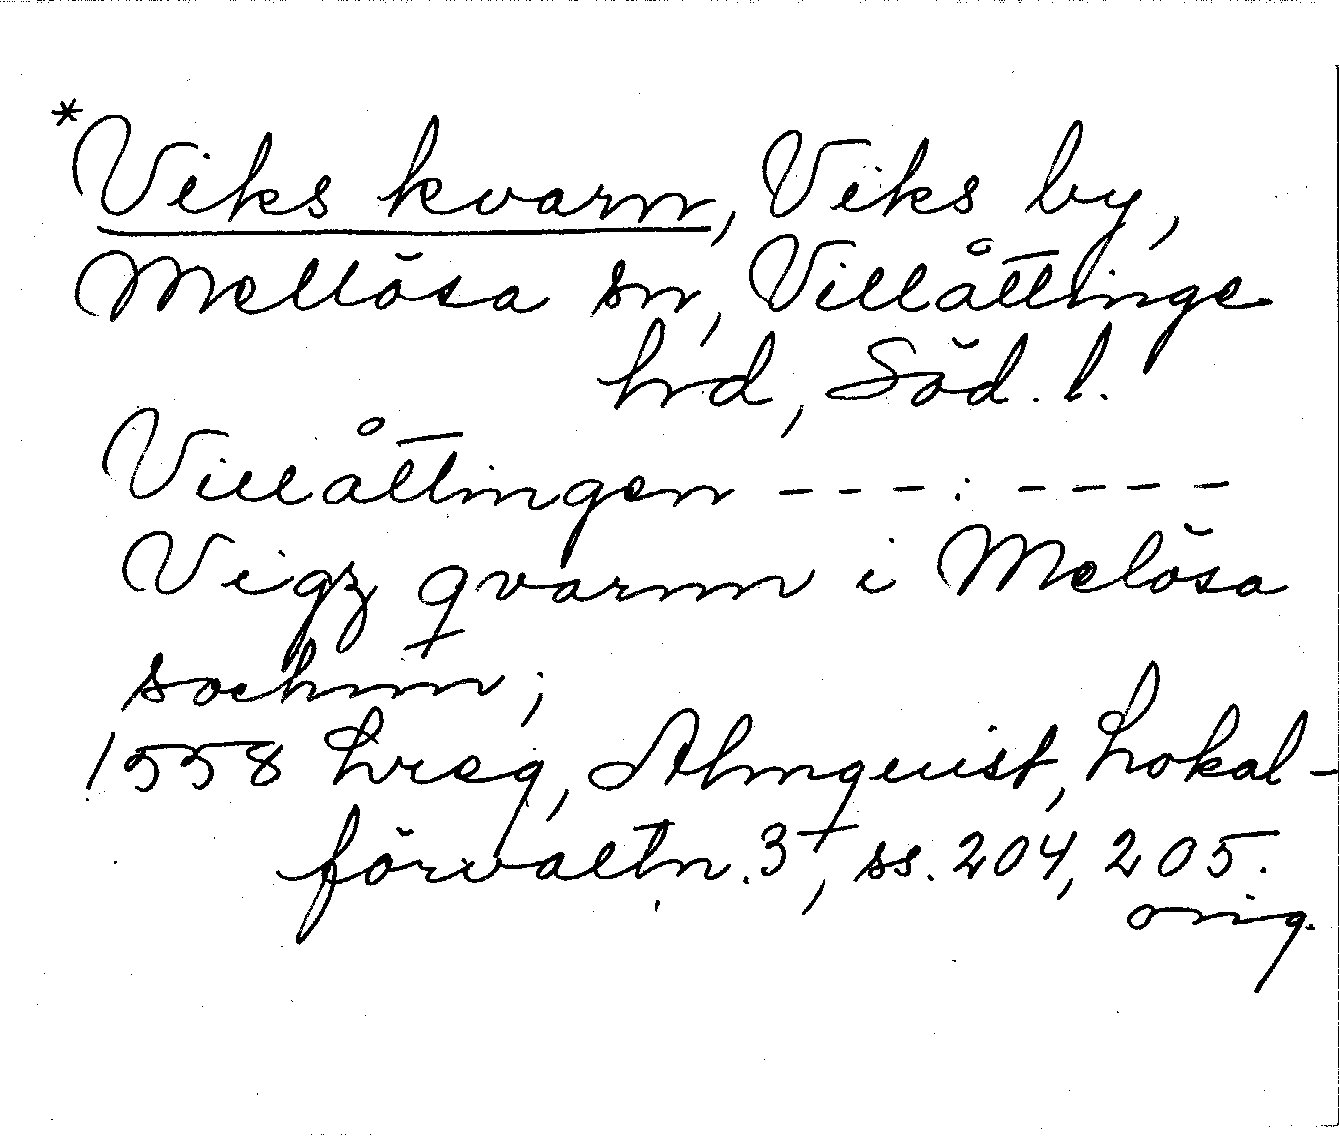 *Viks kvarn, Viks by,
Mellösa sn, Villåttinge
hrd, Söd. l.
Villåttingen - - - : - - - -
Vigz qvarnn i Melösa
sochnn;
1558 hreg, Almquist, Lokal-
förvaltn. 3, ss. 204, 205.
orig.